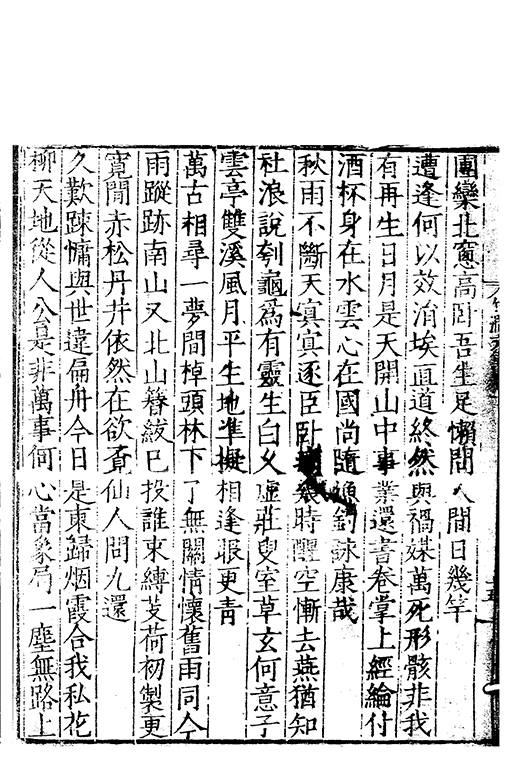 團欒北窓高卧吾生足懶問人間日幾竿
遭逢何以效涓埃直道終然與禍媒萬死形骸非我
有再生日月是天開山中事業還書卷掌上經綸付
酒杯身在水雲心在國尚隨漁釣詠康哉
秋雨不斷天㝠㝠逐臣卧幾時醒空慚去燕猶知
社浪說刳龜爲有靈生白乂虛莊叟室草玄何意子
雲亭雙溪風月平生地準擬相逢眼更青
萬古相尋一夢間棹頭林下了無關情懷舊雨同今
雨蹤跡南山又北山簪紱已投誰束縛芰荷初製更
寬閒赤松丹井依然在欲斉仙人問九還
久歎踈慵與世違扁舟今日是東歸烟霞合我私花
柳天地從人公是非萬事何心當象局一塵無路上